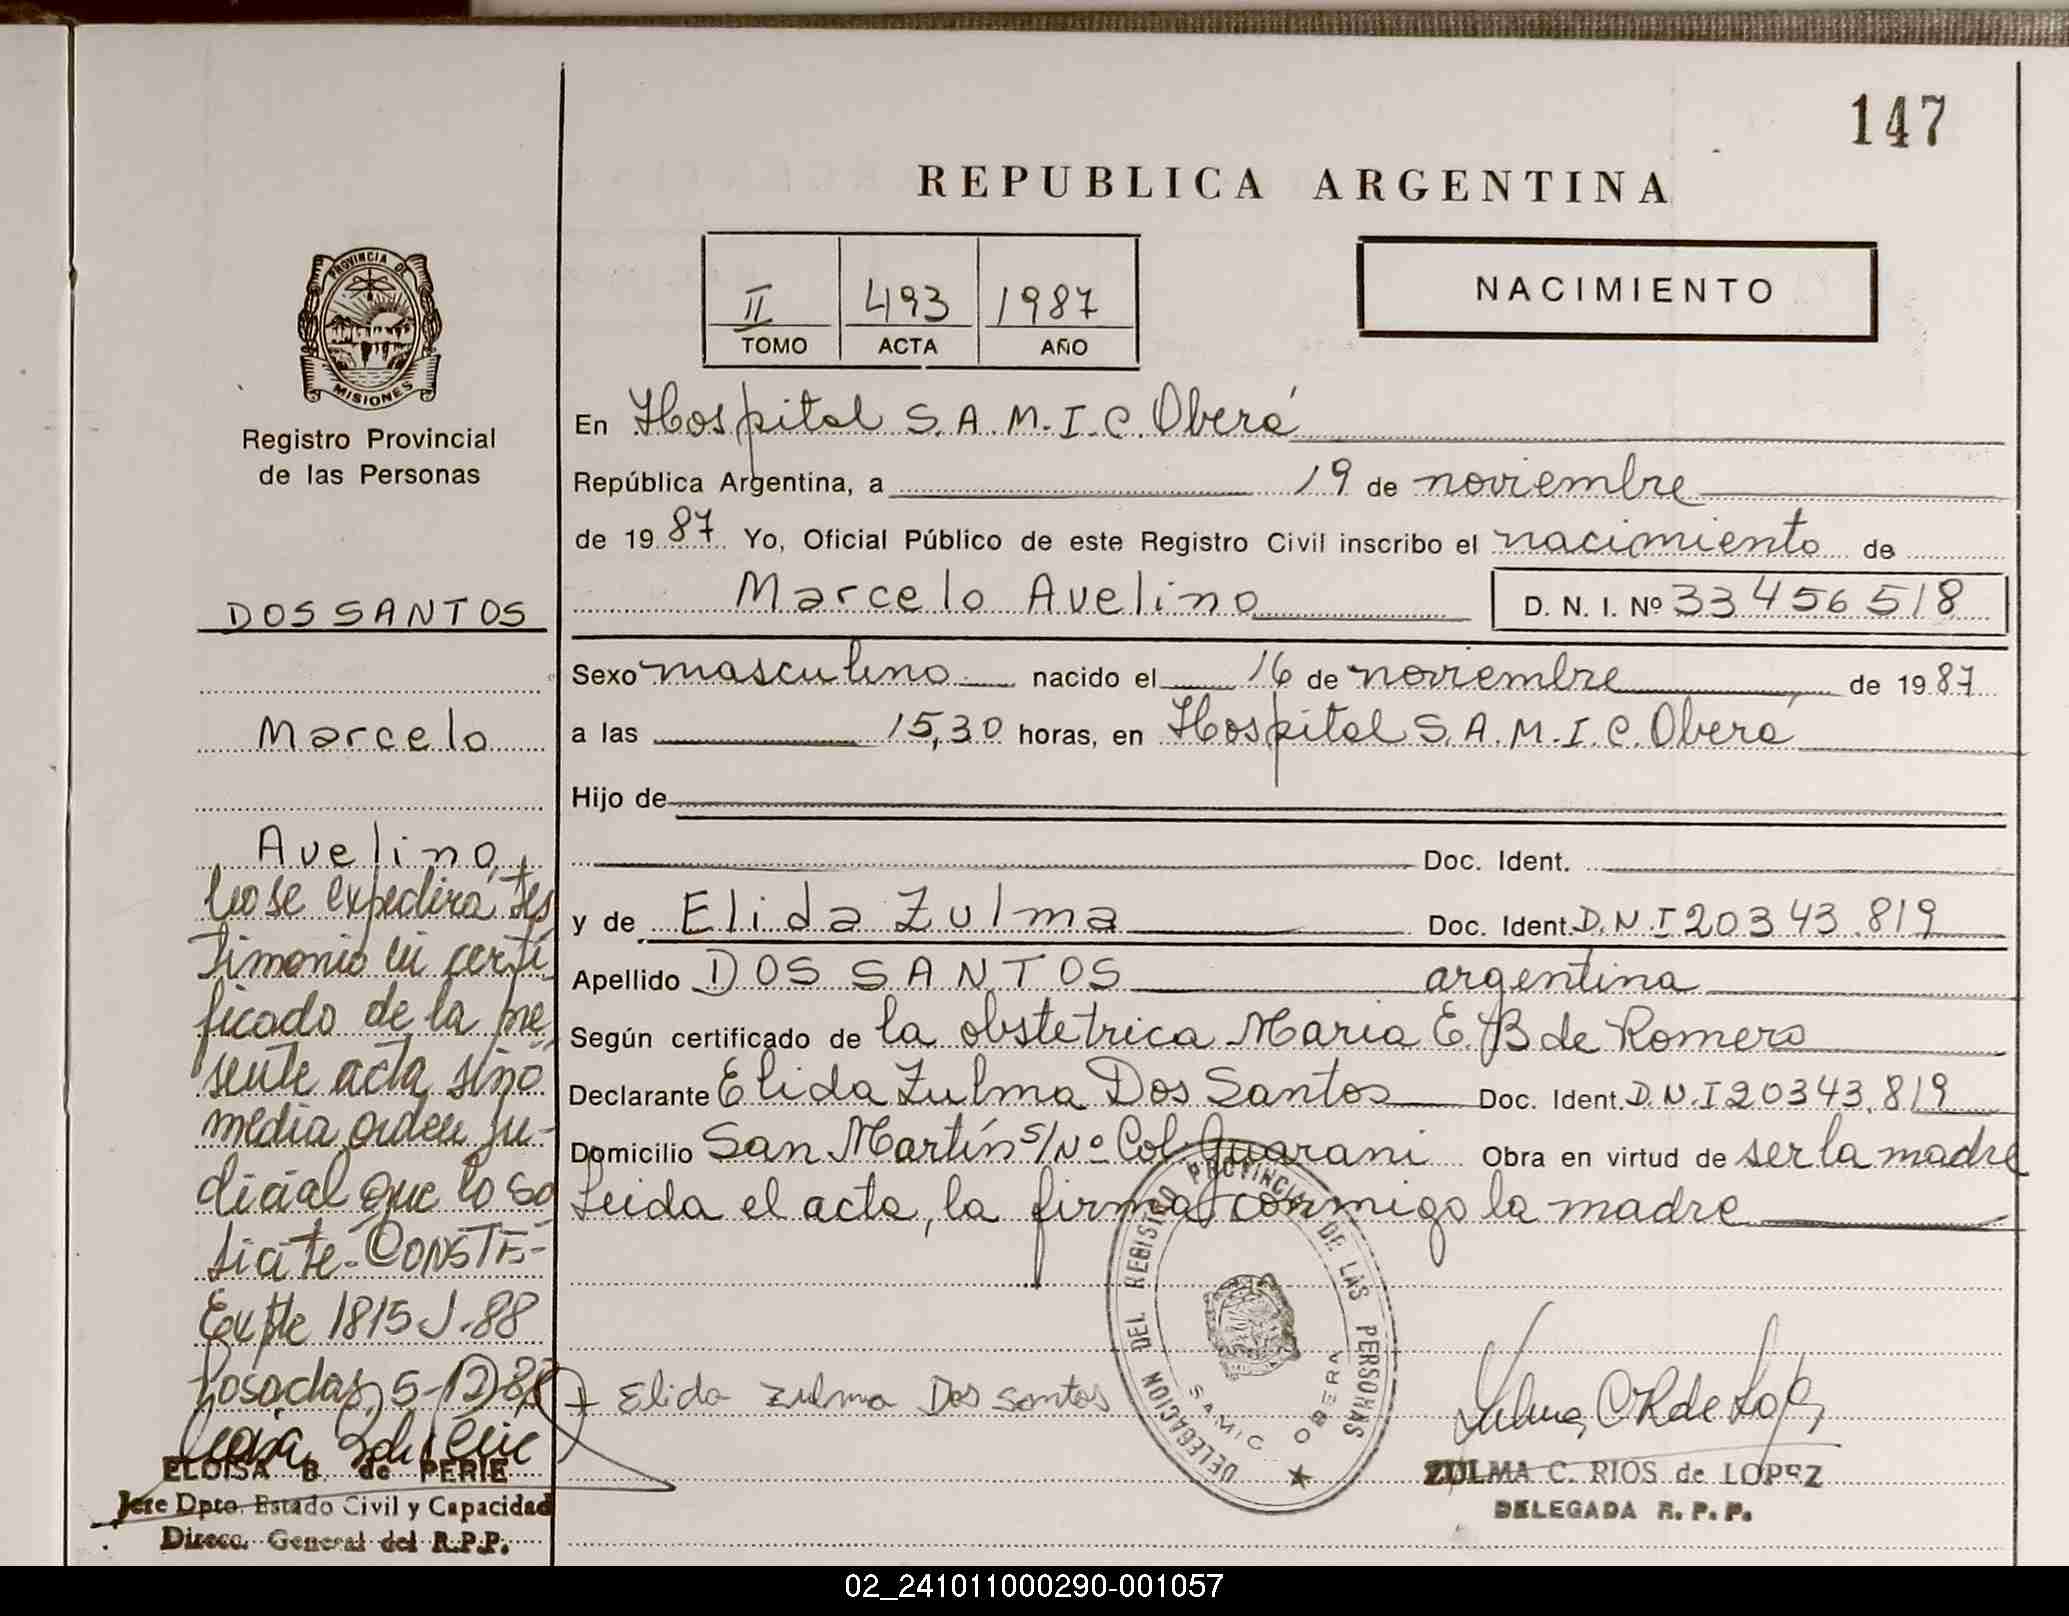 147
REPUBLICA ARGENTINA
II 493 1987
TOMO ACTA AÑO
NACIMIENTO
PROVINCIA DE
MISIONES
Registro Provincial
de las Personas
DOS SANTOS
Marcelo
Avelino,
No se expedirá tes
timonio ni certi
ficado de la pre
sente acta sino
media orden ju-
dicial que lo so
licite-CONSTE-
Expte 1815 J-88
Posadas, 5-12-88
ELOISA B. de PERIE
Jefe Dpto. Estado Civil y Capacidad
Direcc. General del R.P.P.
En Hospital S.A.M.I.C. Oberá
República Argentina, a 19 de noviembre
de 1987 Yo, Oficial Público de este Registro Civil inscribo el nacimiento de
Marcelo Avelino D. N. I. Nº 33456518
Sexo masculino nacido el 16 de noviembre de 1987
a las 15,30 horas, en Hospital S.A.M.I.C. Oberá
Hijo de
Doc. Ident.
y de Elida Zulma Doc. Ident. D.N.I 20343.819
Apellido DOS SANTOS argentina
Según certificado de la obstetrica Maria E. B de Romero
Declarante Elida Zulma Dos Santos Doc. Ident. D.N.I 20343.819
Domicilio San Martín s/Nº Col. Guarani Obra en virtud de ser la madre
Leida el acta, la firma conmigo la madre
DELEGACION DEL REGISTRO PROVINCIAL DE LAS PERSONAS
SAMIC OBERA
+ Elida Zulma Dos Santos
Zulma C R de Lopez
ZULMA C. RIOS de LOPEZ
DELEGADA R. P. P.
02_241011000290-001057